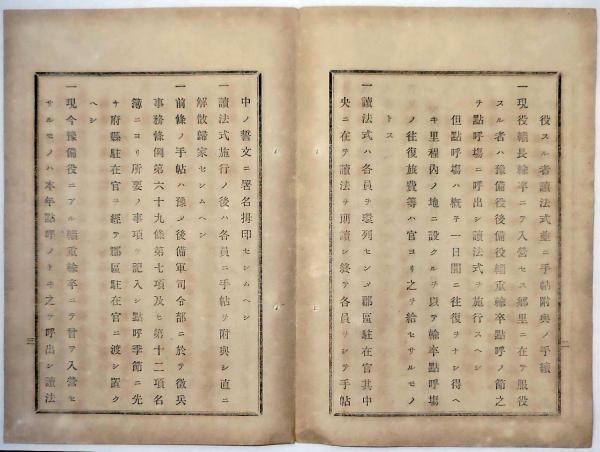 役スル者讀法式並ニ手帖附與ノ手續
一現役輜長輸卒ニテ入營セス郷里ニ在テ服役
スル者ハ豫備役後備役輜重輸卒點呼ノ節之
ヲ點呼塲ニ呼出シ讀法式ヲ施行スヘシ
但點呼塲ハ概子一日間ニ往復ヲナシ得ヘ
キ里程內ノ地ニ設クルヲ以テ輸卒點呼塲
ノ往復旅費等ハ官ヨリ之ヲ給セサルモノ
トス
一讀法式ハ各員ヲ環列セシメ郡區駐在官其中
央ニ在テ讀法ヲ朗讀シ終テ各員ヲシテ手帖
二
中ノ誓文ニ署名捺印セシムヘシ
一讀法式施行ノ後ハ各員ニ手帖ヲ附與シ直ニ
解散歸家セシムヘシ
一前條ノ手帖ハ豫メ後備軍司令部ニ於テ徵兵
事務條例第六十九條第七項及ヒ第十二項名
簿ニヨリ所要ノ事項ヲ記入シ點呼季節ニ先
チ府縣駐在官ヲ經テ郡區駐在官ニ渡シ置ク
ヘシ
一現今豫備役ニアル輜重輸卒ニテ曾テ入營セ
サルモノハ本年點呼ノトキ之ヲ呼出シ讀法
三